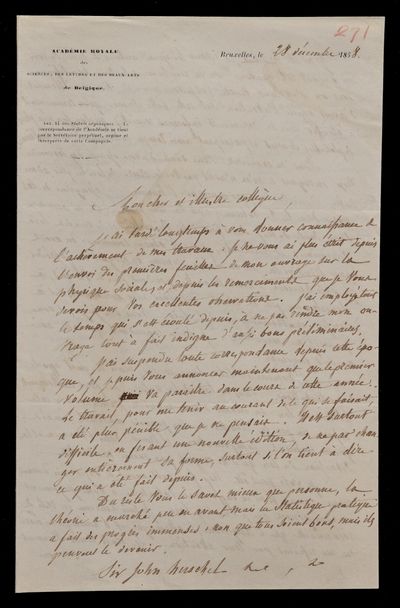 291
ACADÉMIE ROYALE
des
SCIENCES, DES LETTRES ET DES BEAUX-ARTS
de Belgique.
Bruxelles, le 28 décembre 1868.
Art. 14 des Statuts organiques. — La
correspondance de l'Académie se tient
par le Secrétaire perpétuel, organe et
interprète de cette Compagnie.
Mon cher et illustre collègue,
J'ai tardé longtemps à vous donner connaissance de
l'achèvement de mes travaux. Je ne vous ai plus écrit depuis
l'envoi des premières feuilles de mon ouvrage sur la
physique sociale, et depuis les remercîments que je vous
devais pour vos excellentes observations. J'ai employé tout
le temps qui s'est écoulé depuis, à ne pas rendre mon ou-
vrage tout à fait indigne d'aussi bons préliminaires.
J'ai suspendu toute correspondance depuis cette épo-
que, et je puis vous annoncer maintenant que le premier
volume va paraître dans le cours de cette année.
Le travail, pour me tenir au courant de ce qui se faisait,
a été plus pénible que je ne pensais. Il est surtout
difficile, en faisant une nouvelle édition, de ne pas chan-
ger entièrement sa forme, surtout si l'on tient à dire
ce qui a été fait depuis.
Du reste vous le savez mieux que personne, la
théorie a marché peu en avant mais la Statistique pratique
a fait des progrès immenses : non que tous soient bons, mais ils
peuvent le devenir.
Sir John Herschel